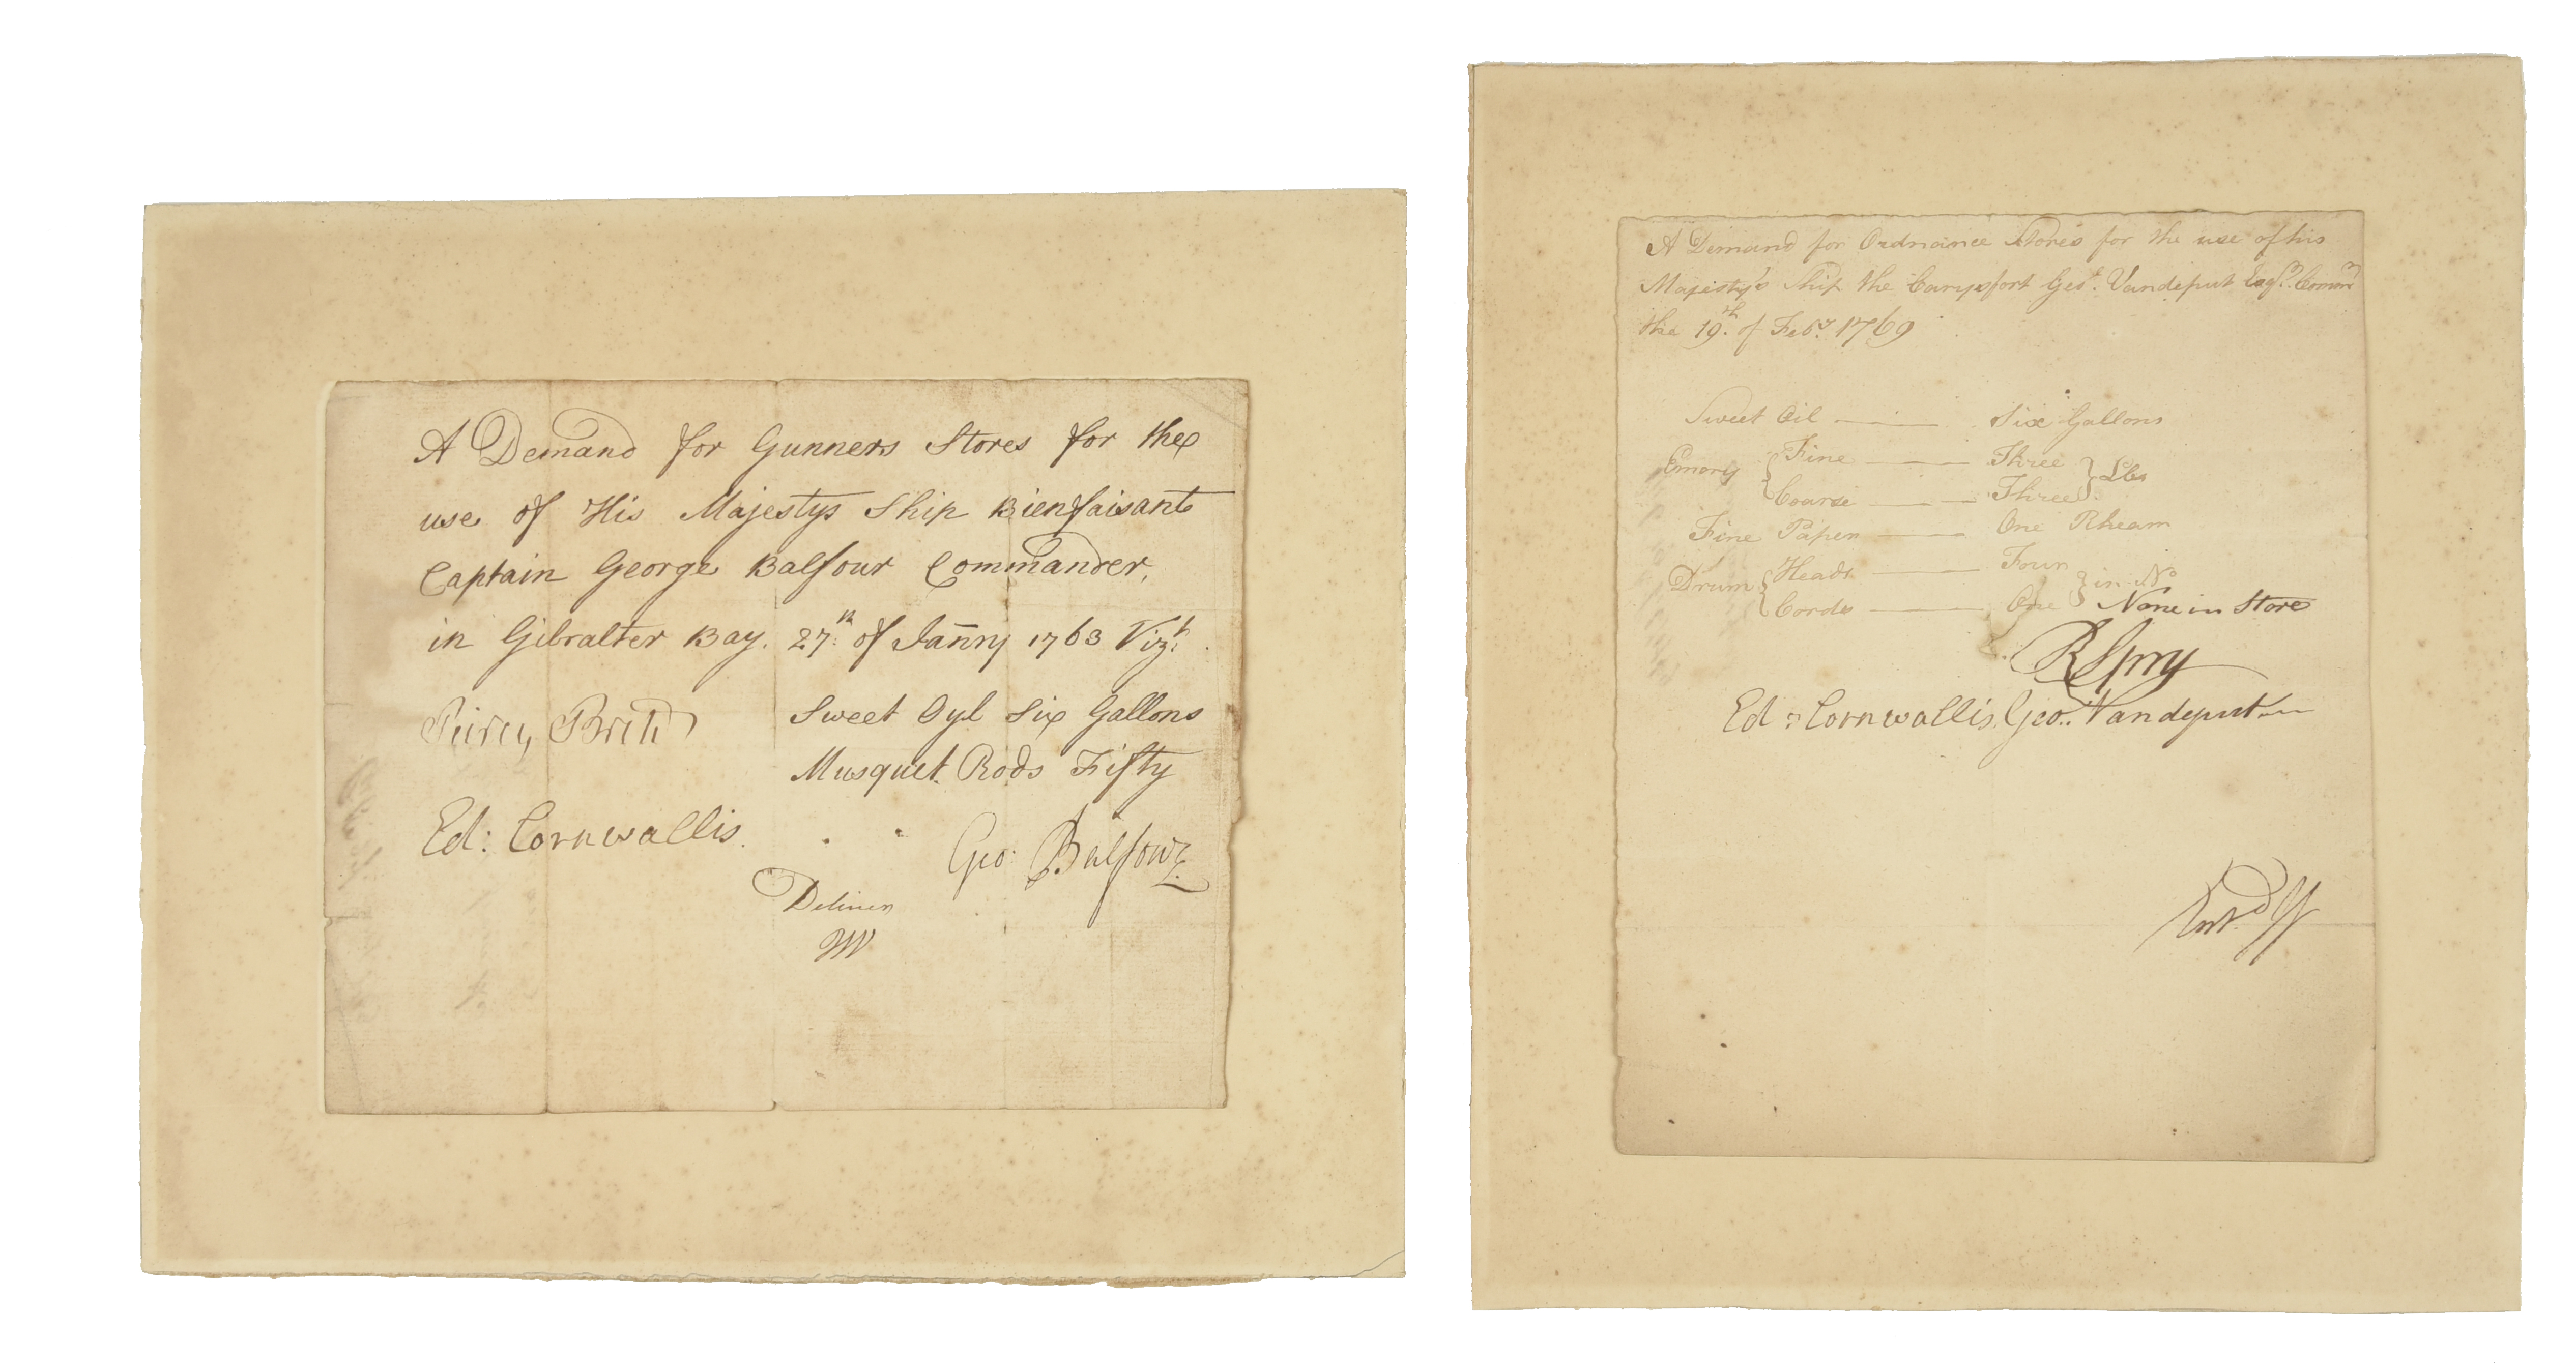 A Demand for Gunners Stores for the
use of His Majestys Ship Bienfaisant
Captain George Balfour Commander,
in Gibralter Bay. 27th of Janry 1763 Vizt
Peircy Brett
Sweet Oyl Six Gallons
Musquet Rods Fifty
Ed: Cornwallis.
Geo: Balfour
Deliver
W
A Demand for Ordnance Stores for the use of his
Majesty's Ship the Carysfort Geo. Vandeput Esqr. Comandr
the 19th. of Feby. 1769
Sweet Oil — Six Gallons
Emory { Fine — Three } Lbs
Coarse — Three
Fine Paper — One Rheam
Drum { Heads — Four } in No
Cords — One None in Store
R Spry
Ed: Cornwallis. Geo: Vandeput
Entd